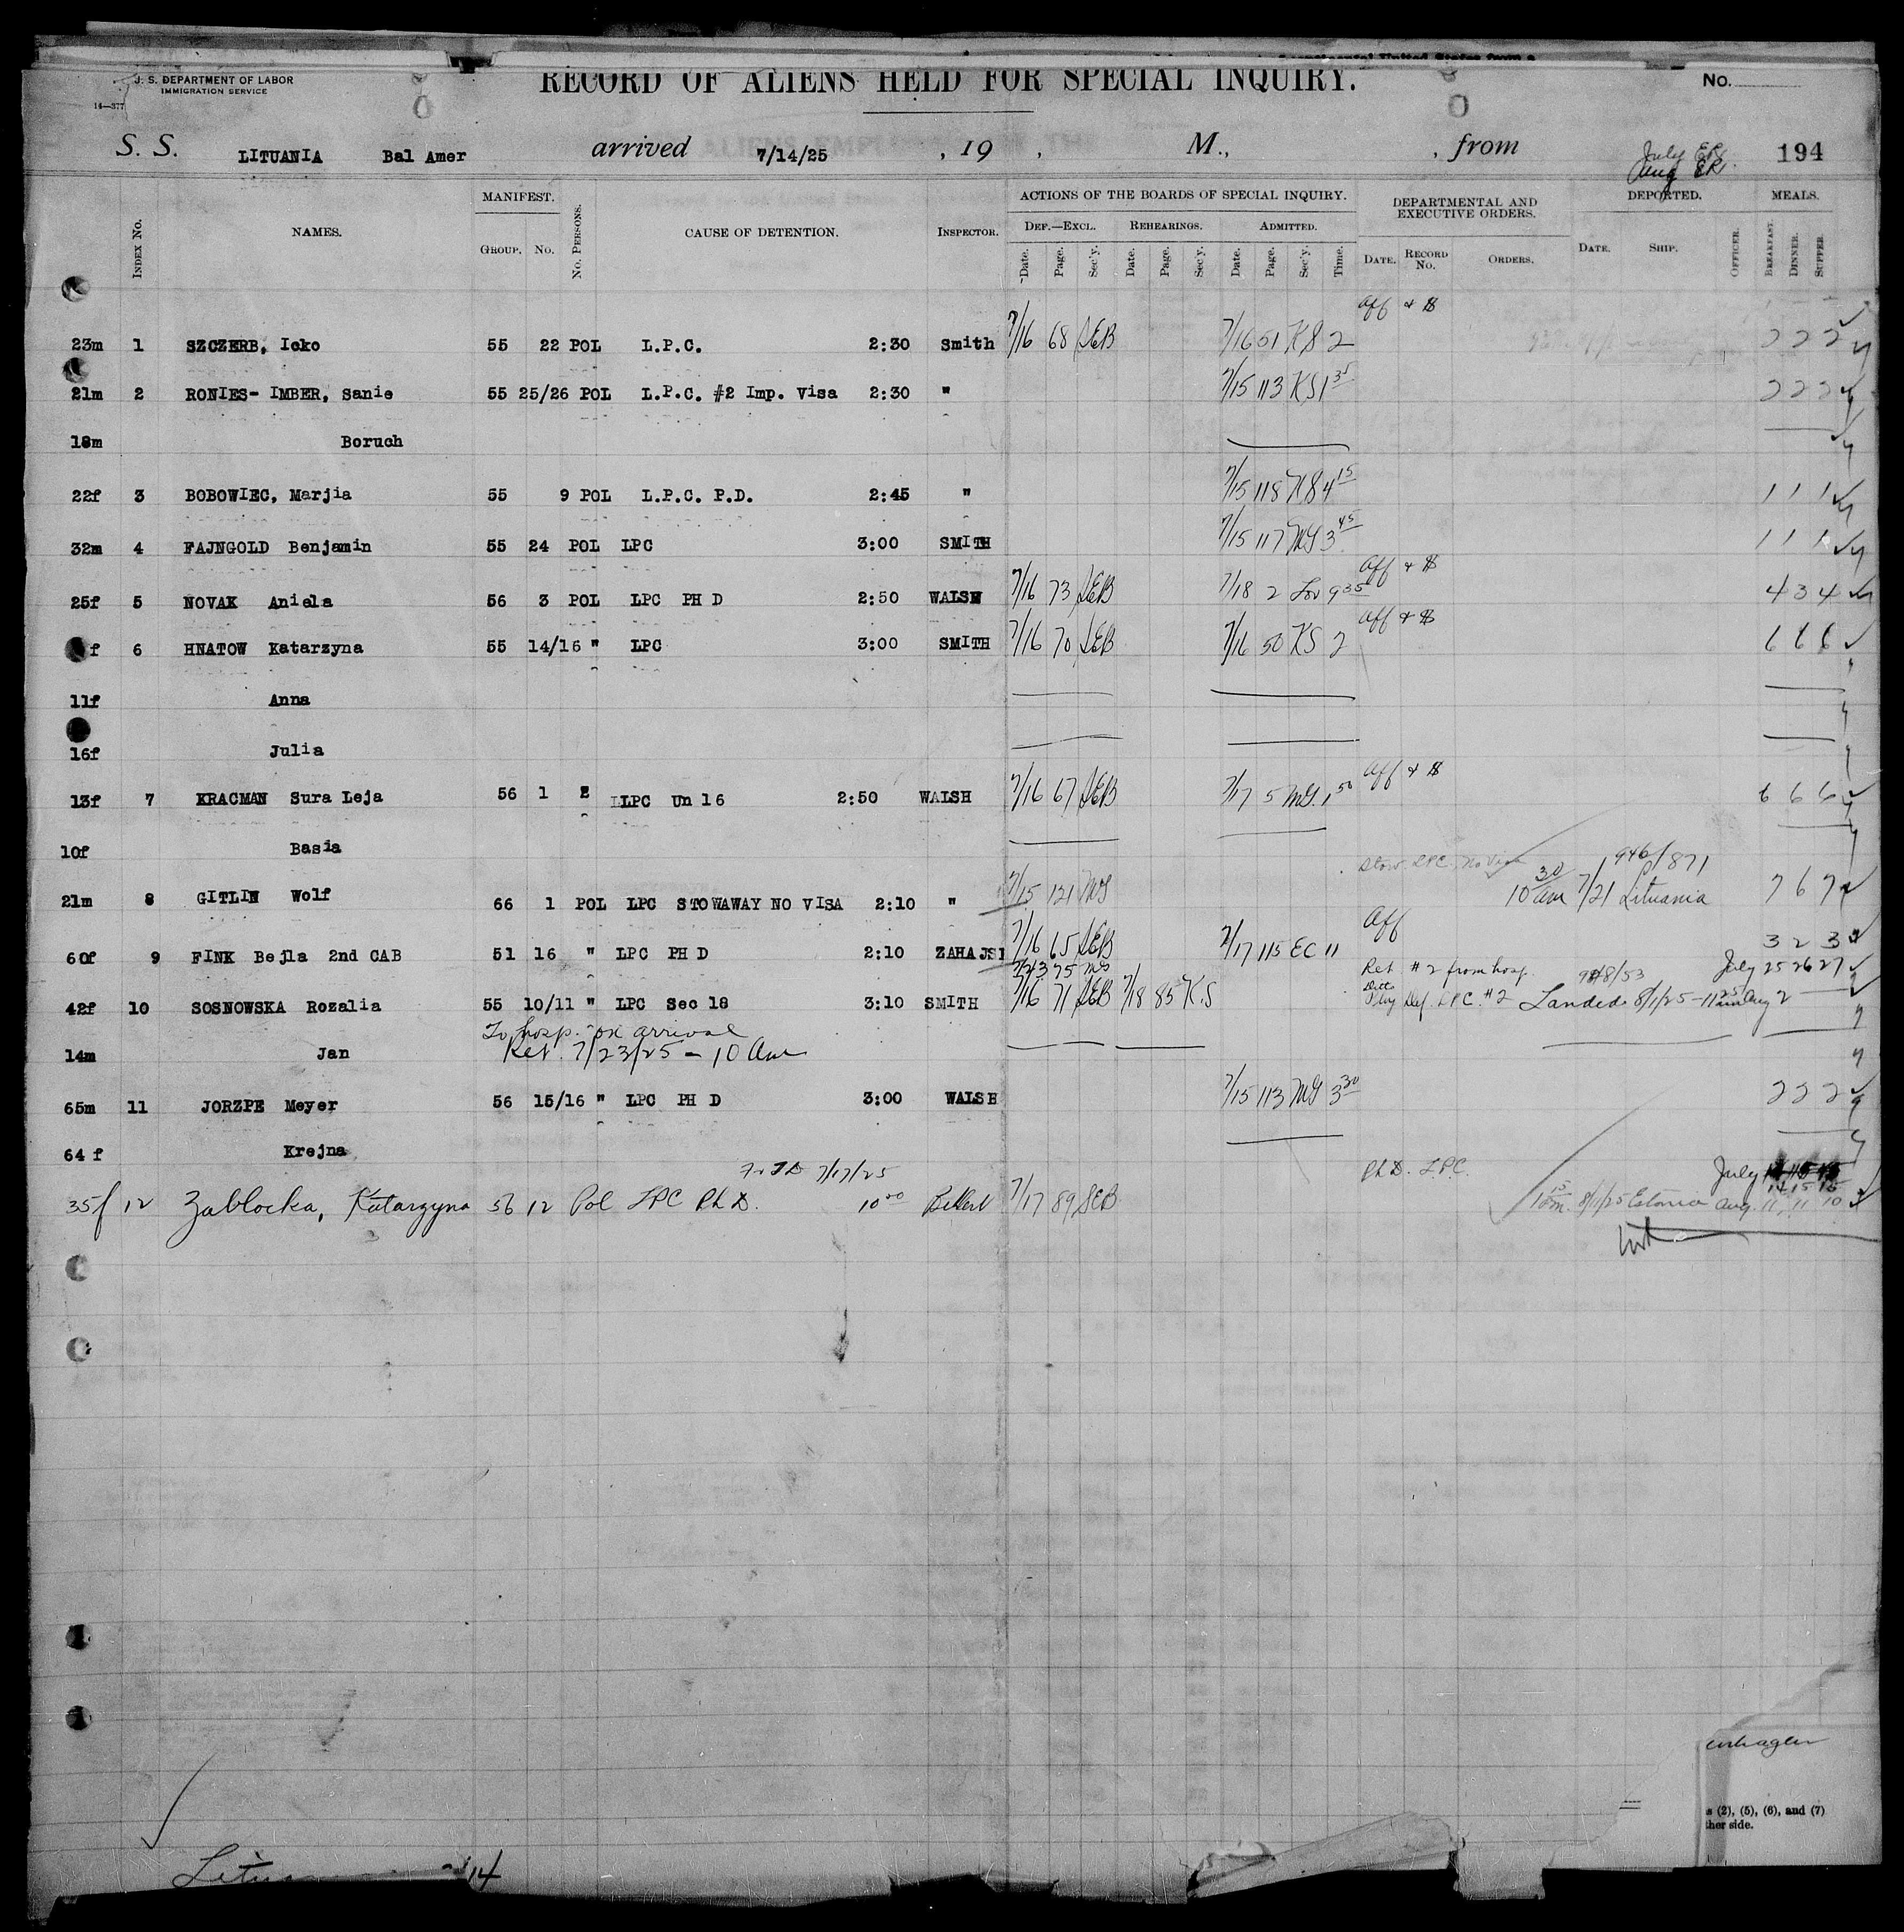 Continental United States from a
U. S. DEPARTMENT OF LABOR
IMMIGRATION SERVICE
14—377
RECORD OF ALIENS HELD FOR SPECIAL INQUIRY.
No.
S. S. LITUANIA Bal Amer arrived 7/14/25 , 19 , M., , from
July ER
Aug ER
194
INDEX NO. NAMES. MANIFEST. GROUP. NO. NO. PERSONS. CAUSE OF DETENTION. INSPECTOR. ACTIONS OF THE BOARDS OF SPECIAL INQUIRY. DEF.—EXCL. Date. Page. Sec'y. REHEARINGS. Date. Page. Sec'y. ADMITTED. Date. Page. Sec'y. Time. DEPARTMENTAL AND EXECUTIVE ORDERS. DATE. RECORD NO. ORDERS. DEPORTED. DATE. SHIP. OFFICER. MEALS. BREAKFAST. DINNER. SUPPER.
Aff & $
23m 1 SZCZERB, Icko 55 22 POL L.P.C. 2:30 Smith 7/16 68 SEB 7/16 51 KS 2 2 2 2
21m 2 RONIES- IMBER, Sanie 55 25/26 POL L.P.C. #2 Imp. Visa 2:30 " 7/15 113 KS 1 35 2 2 2
18m Boruch
22f 3 BOBOWIEC, Marjia 55 9 POL L.P.C. P.D. 2:45 " 7/15 118 KS 4 15 1 1 1
32m 4 FAJNGOLD Benjamin 55 24 POL LPC 3:00 SMITH 7/15 117 MG 3 45 1 1 1
Aff & $
25f 5 NOVAK Aniela 56 3 POL LPC PH D 2:50 WALSH 7/16 73 SEB 7/18 2 9 35 4 3 4
Aff & $
f 6 HNATOW Katarzyna 55 14/16 " LPC 3:00 SMITH 7/16 70 SEB 7/16 50 KS 2 6 6 6
11f Anna
16f Julia
Aff & $
13f 7 KRACMAN Sura Leja 56 1 LPC Un 16 2:50 WALSH 7/16 67 SEB 7/17 5 MG 1 50 6 6 6
10f Basia
Stow. LPC. No Visa 946/871
21m 8 GITLIN Wolf 66 1 POL LPC STOWAWAY NO VISA 2:10 " 7/15 121 MG 10 30 am 7/21 Lituania 7 6 7
Aff
60f 9 FINK Bejla 2nd CAB 51 16 " LPC PH D 2:10 ZAHAJSI 7/16 65 SEB 7/17 115 EC 11 3 2 3
7/24 375 MG Ret #2 from hosp. 98/53 July 25 26 27
42f 10 SOSNOWSKA Rozalia 55 10/11 " LPC Sec 18 3:10 SMITH 7/16 71 SEB 7/18 85 K.S Phy Def. LPC. #2 Landed 8/1/25 - 11 25 am Aug 2
To hosp. on arrival
14m Jan Ret. 7/23/25 - 10 Am
65m 11 JORZPE Meyer 56 15/16 " LPC PH D 3:00 WALSH 7/15 113 MG 3 30 2 2 2
64 f Krejna
7/17/25 Ph D. LPC. July 14 15 15
35f 12 Zablocka, Katarzyna 56 12 Pol LPC Ph D. 10 00 7/17 89 SEB 8/11/25 Estonia Aug. 11, 11 10
s (2), (5), (6), and (7)
ther side.
14